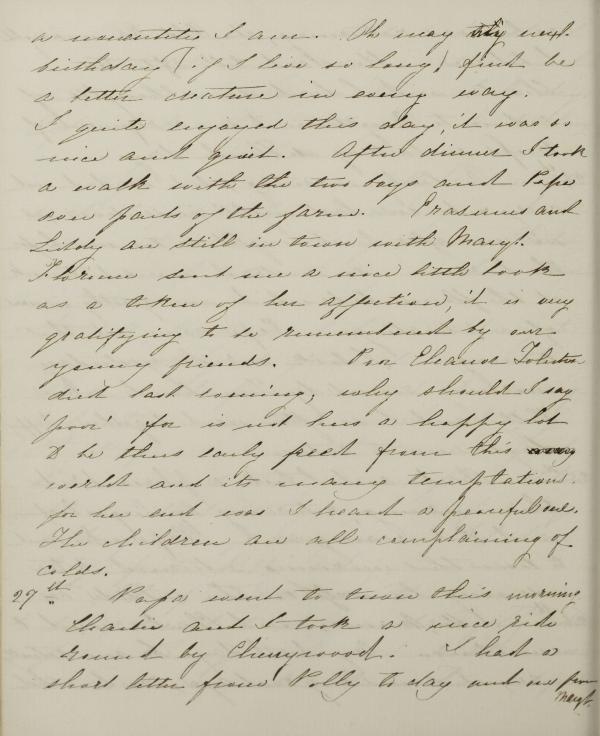 a nonentity I am. Oh may my next
birthday (if I live so long) find be
a better creature in every way.
I quite enjoyed this day, it was so
nice and quiet. After dinner I took
a walk with the two boys and Papa
over parts of the farm. Erasmus and
Libby are still in town with Margt.
Florence sent me a nice little book
as a token of her affection, it is very
gratifying to be remembered by our
young friends. Poor Eleanor
died last evening, why should I say
'poor' for is not hers a happy lot
to be thus early freed from this
world and its many temptation
for her end was I heard a peaceful one.
The children are all complaining of
colds.
29th. Papa went to town this morning
Charlie and I took a nice ride
round by Cherrywood. I had a
short letter from Polly to day and one from
Margt.